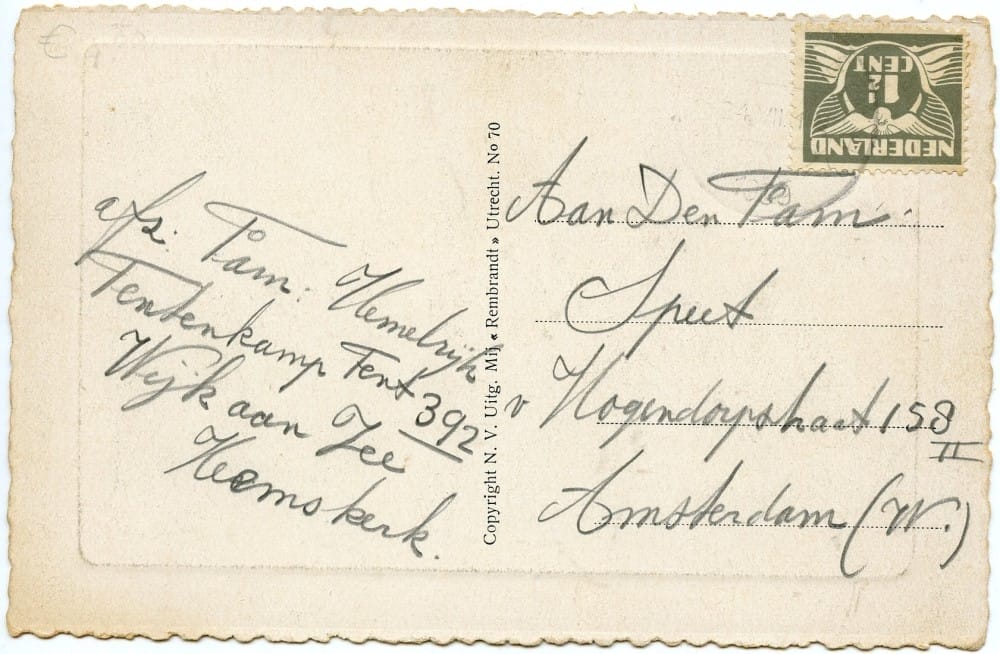 afz. Fam: Hemelrijk
Tentenkamp Tent 392
Wijk aan Zee
Heemskerk.
Copyright N. V. Uitg. Mij « Rembrandt » Utrecht. No 70
NEDERLAND
1½
CENT
Aan Den Fam:
Speet
v Hogendorpstraat 158 II
Amsterdam (W.)